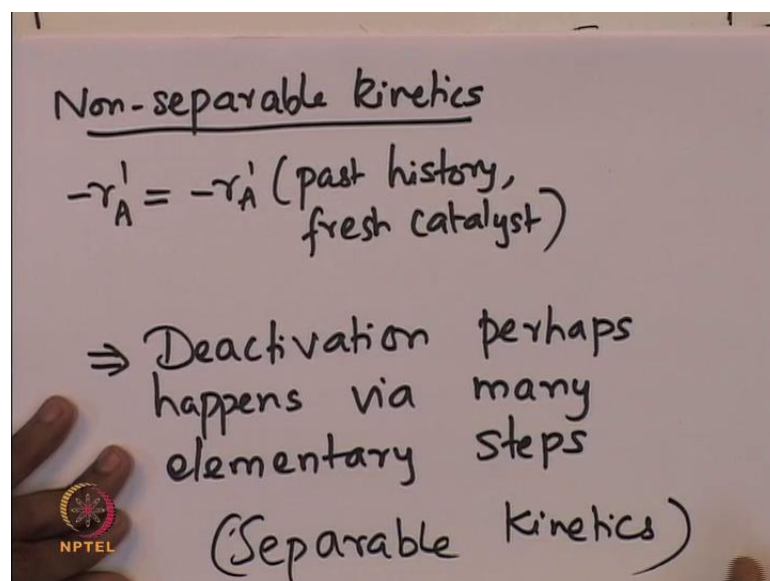 Non-separable kinetics
-r'A = -r'A (past history,
fresh catalyst)
⇒ Deactivation perhaps
happens via many
elementary steps
(Separable Kinetics)
NPTEL